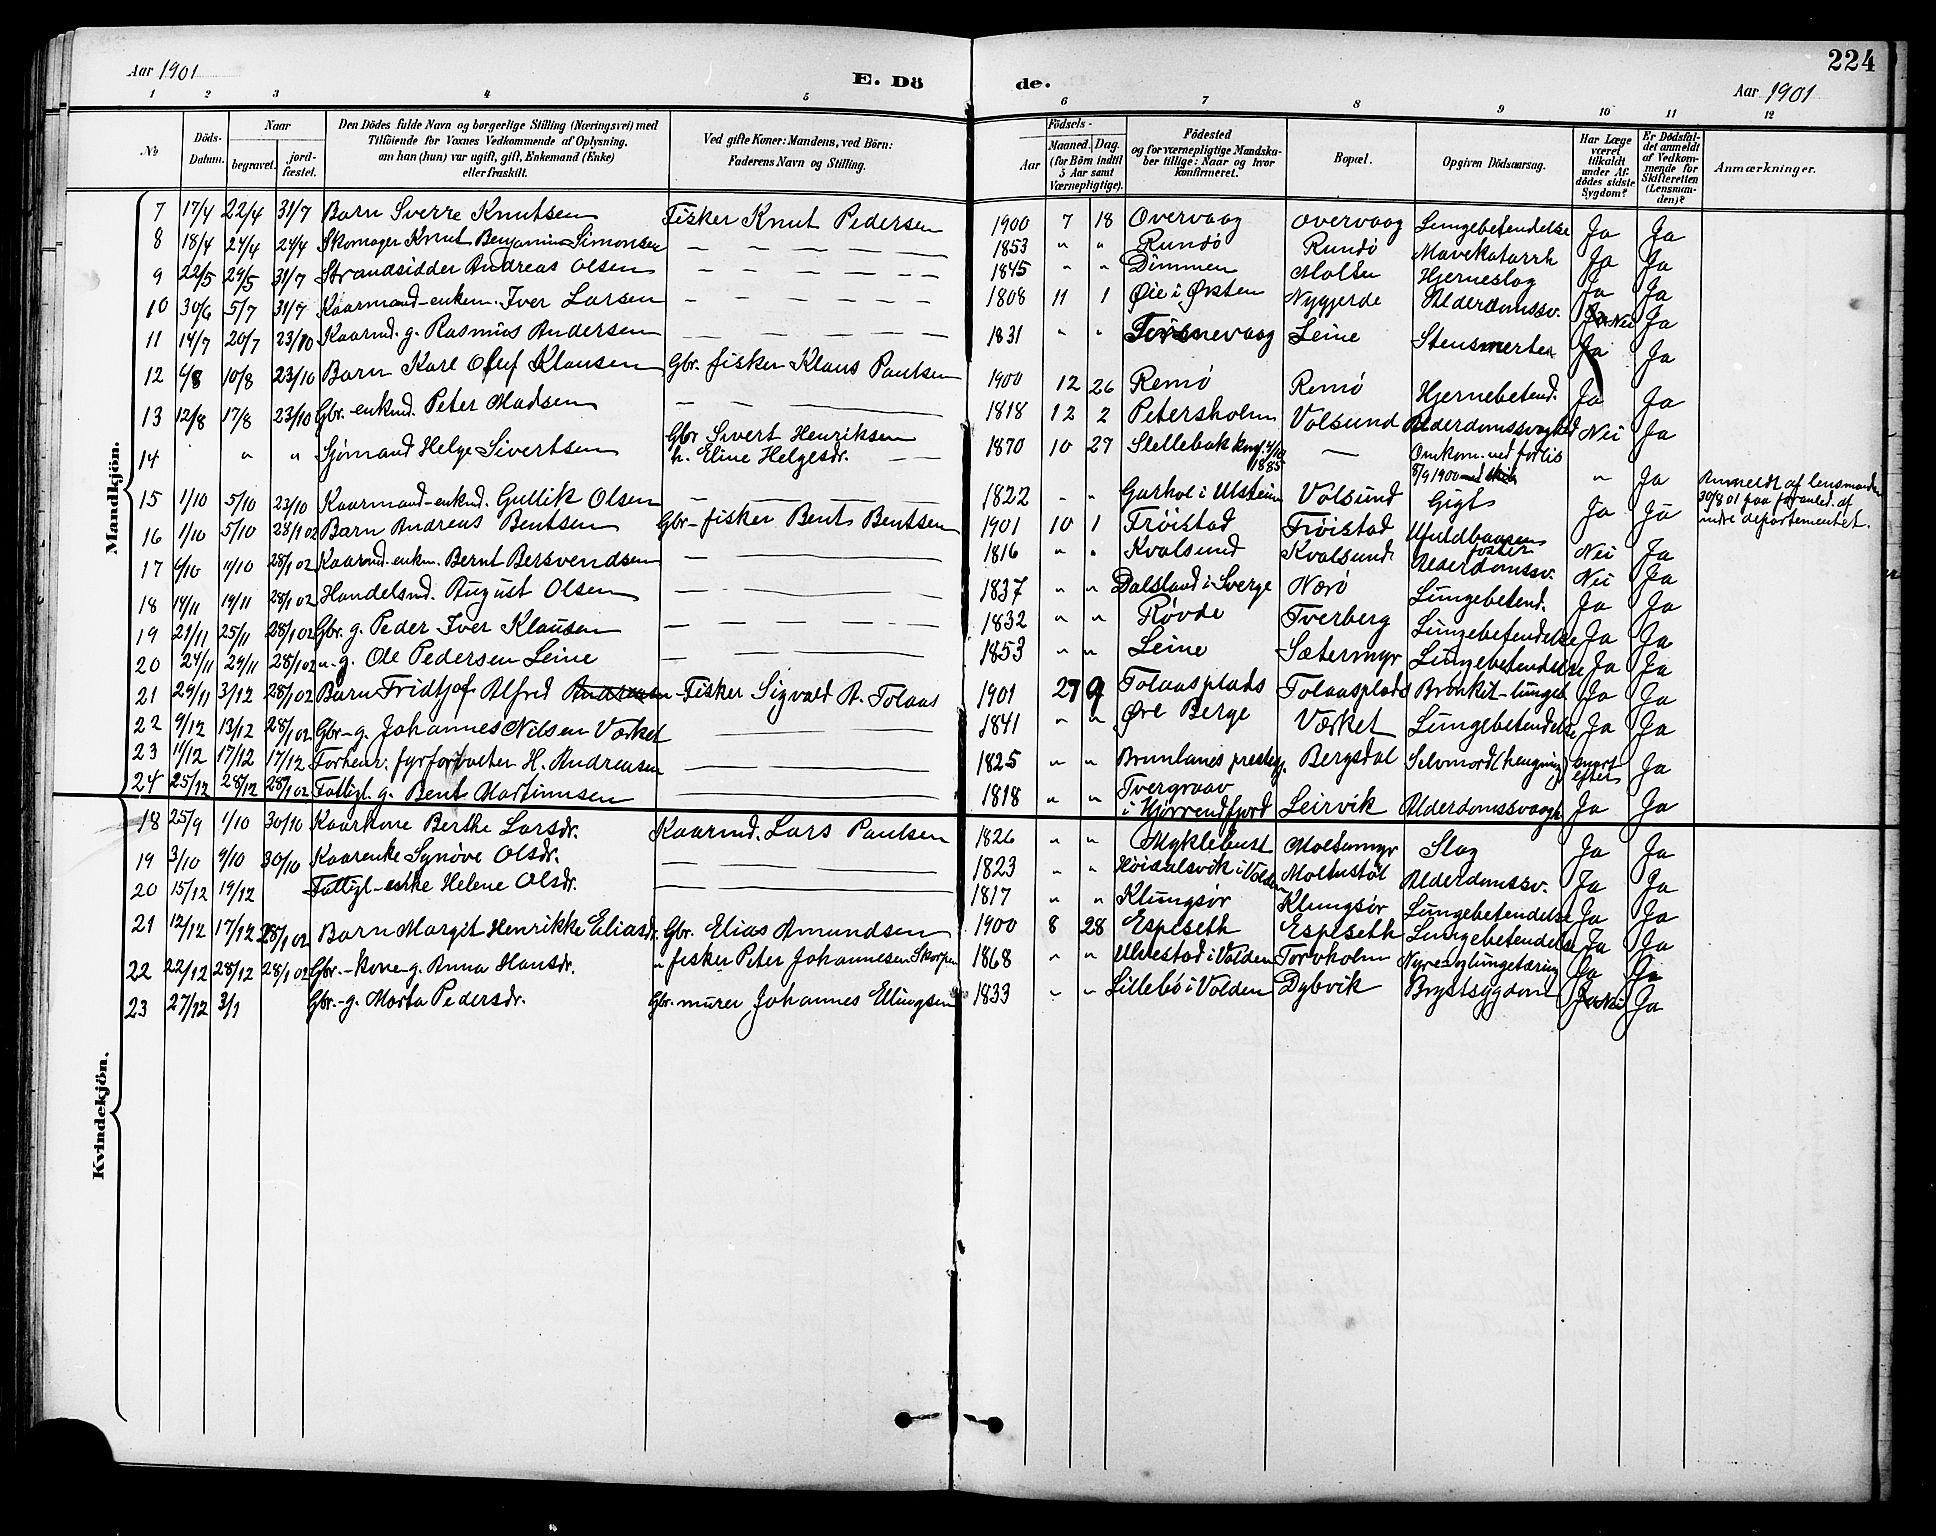 224
Aar 1901
E. Dö
de.
Aar 1901
1 2 3 4 5 6 7 8 9 10 11 12
No
Döds-Datum.
Naar
begravet.
jord-fæstet.
Den Dödes fulde Navn og borgerlige Stilling (Næringsvei) med
Tilföiende for Voxnes Vedkommende af Oplysning,
om han (hun) var ugift, gift, Enkemand (Enke)
eller fraskilt.
Ved gifte Koner: Mandens, ved Börn:
Faderens Navn og Stilling.
Födsels-
Aar
Maaned. Dag.
(for Börn indtil
5 Aar samt
Værnepligtige).
Födested
og for værnepligtige Mandska-
ber tillige: Naar og hvor
konfirmeret.
Bopæl.
Opgiven Dödsaarsag.
Har Læge
været
tilkaldt
under Af-
dödes sidste
Sygdom?
Er Dödsfal-
det anmeldt
af Vedkom-
mende for
Skifteretten
(Lensman-
den)?
Anmærkninger.
Mandkjön.
7 17/4 22/4 31/7 Barn Sverre Knutsen Fisker Knut Pedersen 1900 7 18 Overvaag Overvaag Lungebetendelse Ja Ja
8 18/4 24/4 24/4 Skomager Knut Benjamin Simonsen — — — 1853 " " Rundö Rundö Mavekatarrh Ja Ja
9 22/5 29/5 31/7 Strandsidder Andreas Olsen — — — 1845 " " Dimmen Moltu Hjerneslag Ja Ja
10 30/6 5/7 31/7 Kaarmand-enkem. Iver Larsen — — — 1808 11 1 Øie i Ørsten Nygjerde Alderdomssv. Ja Nei Ja
11 14/7 20/7 23/10 Kaarmd. g. Rasmus Andersen — — — 1831 " " Leine Stensmerter Ja Ja
12 6/8 10/8 23/10 Barn Karl Oluf Klausen Gbr. fisker Klaus Paulsen 1900 12 26 Remö Remö Hjernebetend. Ja Ja
13 12/8 17/8 23/10 Gbr.-enkmd. Peter Madsen — — 1818 12 2 Petersholm Volsund Alderdomssvaghed Nei Ja
14 " " Sjömand Helge Sivertsen Gbr Sivert Henriksen
h. Eline Helgesdr. — — 1870 10 27 Slettebak 1885 — Omkom. ved forlis
8/9 1900 " Ja Anmeldt af lensmanden
30/8 01 paa foranled. af
indre departementet.
15 1/10 5/10 23/10 Kaarmand-enkmd. Gullik Olsen — — — 1822 " " Garhol i Ulstein Volsund Gigt Ja Ja
16 1/10 5/10 28/1 02 Barn Andreas Bentsen Gbr-fisker Bent Bentsen 1901 10 1 Tröistad Tröistad Ufuldbaaren
foster Nei Ja
17 6/10 11/10 28/1 02 Kaarmd-enkm. Bernt Bersvendsen — — 1816 " " Kvalsund Kvalsund Alderdomssv. Nei Ja
18 14/11 19/11 28/1 02 Handelsmd. August Olsen — — 1837 " " Dalsland i Sverge Nærö Lungebetend. Ja Ja
19 21/11 25/11 28/1 02 Gbr. g. Peder Iver Klausen — — 1832 " " Røvde Tverberg Lungebetendelse Ja Ja
20 24/11 29/11 28/1 02 "-g. Ole Pedersen Leine — — 1853 " " Leine Sætermyr Lungebetendelse Ja Ja
21 29/11 3/12 28/1 02 Barn Fridtjof Alfred Andreasen Fisker Sigvald A. Tolaas 1901 27 9 Tolaasplads Tolaasplads Bronkit-lungeb Ja Ja
22 9/12 13/12 28/1 02 Gbr-g. Johannes Nilsen Værket — — 1841 " " Øvre Berge Værket Lungebetendelse Ja Ja
23 11/12 17/12 17/12 Forhenv. fyrforvalter H. Andreasen — — 1825 " " Brunlanes prestegj. Bergsdal Selvmord (hengning) snart
efter Ja
24 25/12 28/12 28/1 02 Fattigl. g. Bent Martinussen — — 1818 " " Tvergraav
i Hjörrendfjord Leirvik Alderdomssvaagh Ja Ja
Kvindekjön.
18 25/9 1/10 30/10 Kaarkone Berthe Larsdr. Kaarmd. Lars Paulsen 1826 " " Myklebust Moltumyr Slag Ja Ja
19 3/10 9/10 30/10 Kaarenke Synöve Olsdr. — — 1823 " " Höidalsvik i Volden Moltustöl Alderdomssv. Ja Ja
20 15/12 19/12 Fattigl-enke Helene Olsdr. — — 1817 " " Klungsör Klungsör Lungebetendelse Ja Ja
21 12/12 17/12 28/1 02 Barn Margit Henrikke Eliasdr. Gbr. Elias Amundsen 1900 8 28 Espeseth Espeseth Lungebetendelse Ja Ja
22 22/12 28/12 28/1 02 Gbr.-kone-g. Anna Hansdr. " fisker Peter Johannesen Skorpen 1868 " " Ulvestad i Volden Torvholm Nyre-og lungetæring Ja Ja
23 27/12 3/1 Gbr.-g. Marta Pedersdr. Gbr. murer Johannes Ellingsen 1833 " " Lillebö i Volden Dybvik Brystsygdom Ja Nei Ja